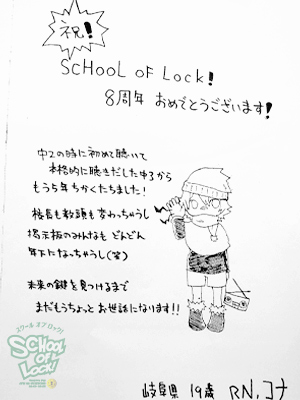 祝!
SCHOOL OF LOCK!
8周年 おめでとうございます!
中2の時に初めて聴いて
本格的に聴きだした中3から
もう5年ちかくたちました!
校長も教頭も変わっちゃうし
掲示板のみんなも どんどん
年下になっちゃうし(笑)
未来の鍵を見つけるまで
まだもうちょっと お世話になります!!
スクール オブ ロック!
SCHOOL
OF
LOCK!
岐阜県 19歳 RN.コナ